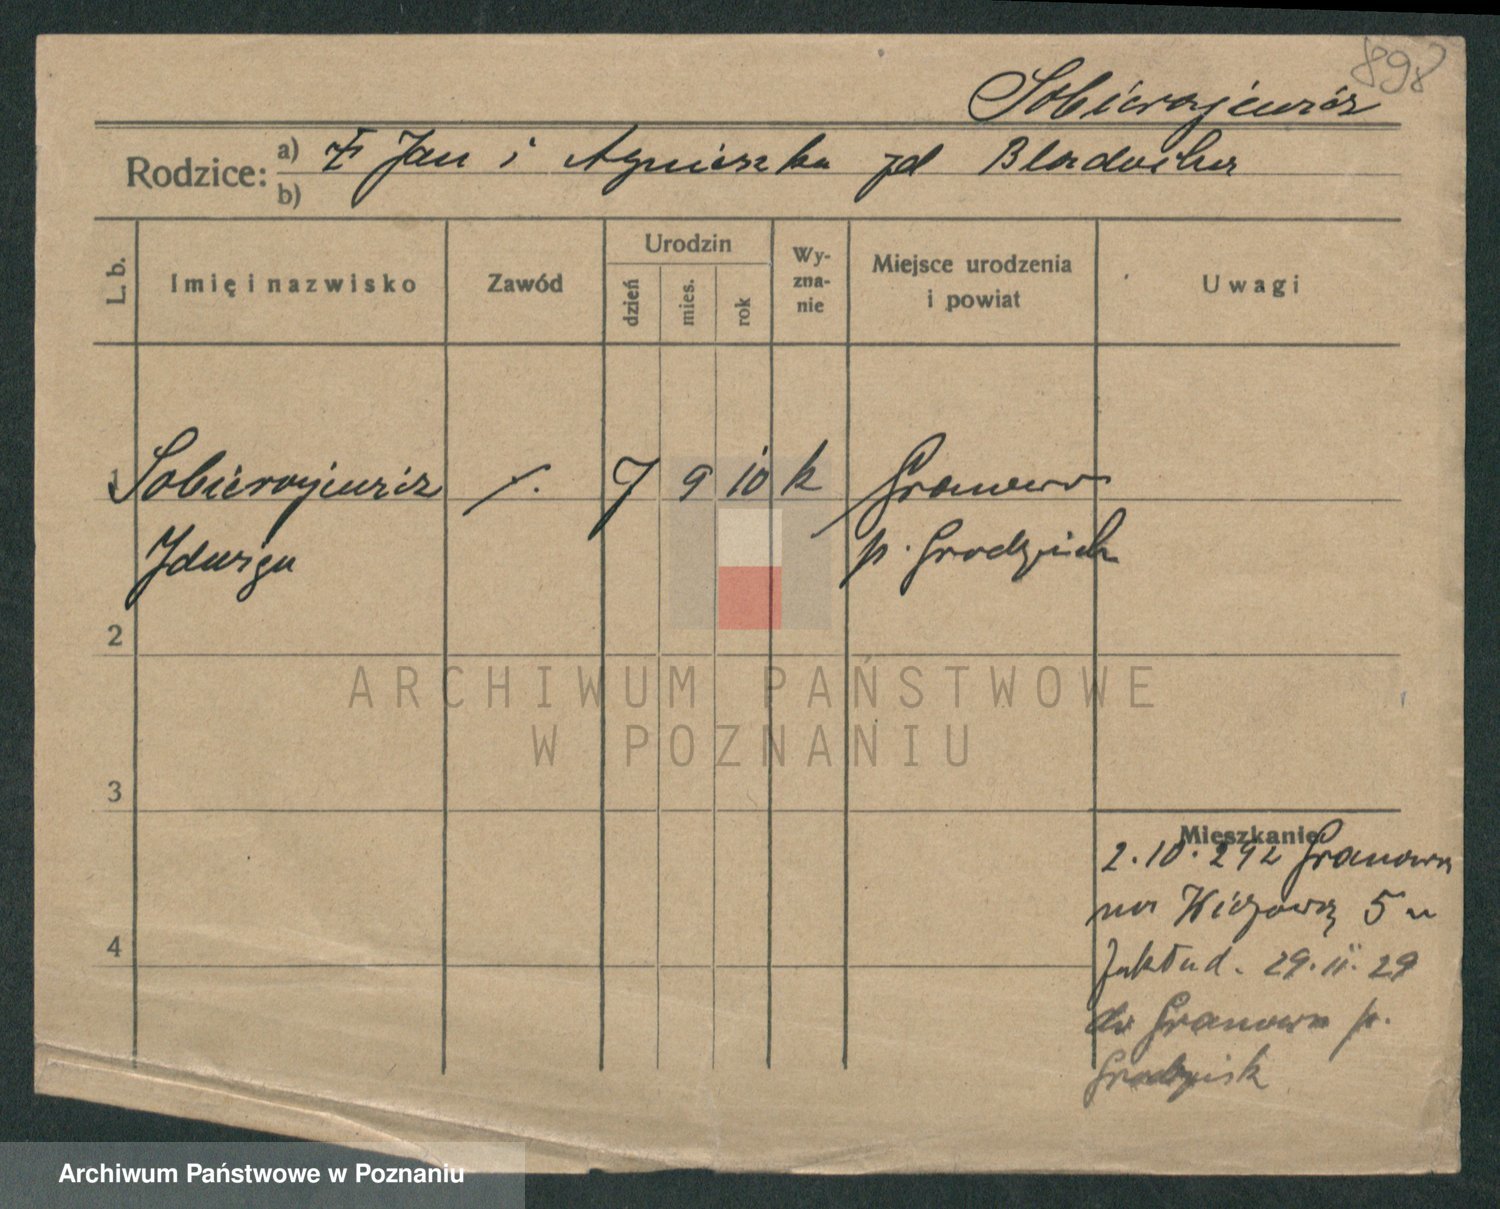 898
Sobierajewicz
Rodzice: a) Jan i Agnieszka zd
b)
L. b.
Imię i nazwisko
Zawód
Urodzin
dzień
mies.
rok
Wy-
zna-
nie
Miejsce urodzenia
i powiat
Uwagi
1 Sobierajewicz 7 9 10 k Granowo
Jdwiga p. Grodzisk
2
3
4
Mieszkanie
2.10.29 z Granowa
na 5 u
Jakłud. 29.11.29
do Granowa p.
Grodzisk
ARCHIWUM PAŃSTWOWE
W POZNANIU
Archiwum Państwowe w Poznaniu